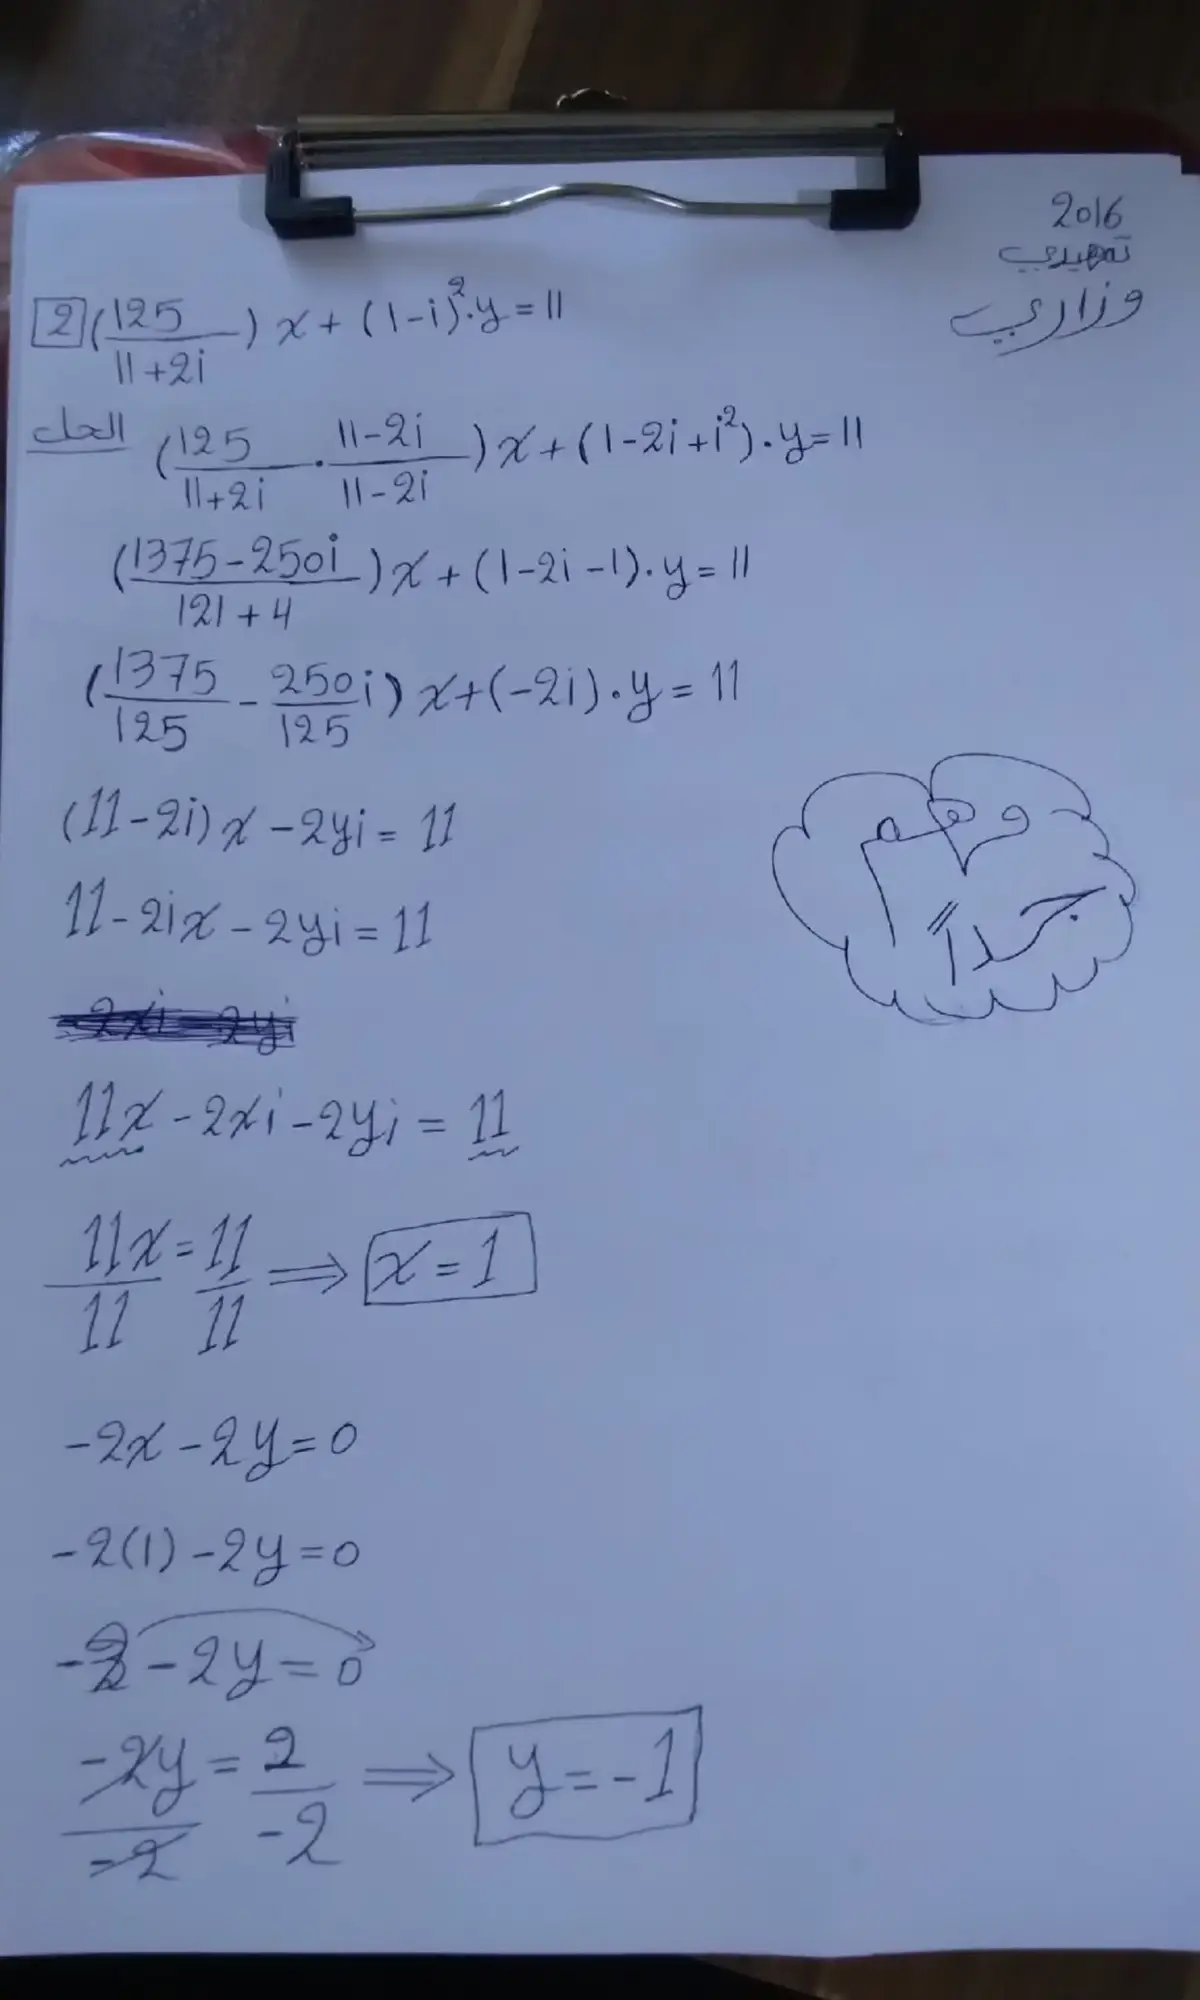 2016
تمهيدي
وزاري
2 (125/11+2i) x + (1-i)².y = 11
الحل (125/11+2i . 11-2i/11-2i) x + (1-2i+i²).y = 11
(1375-250i/121+4) x + (1-2i-1).y = 11
(1375/125 - 250/125 i) x + (-2i).y = 11
(11-2i) x - 2yi = 11
11 - 2ix - 2yi = 11
11x - 2xi - 2yi = 11
11x/11 = 11/11 ⟹ x = 1
-2x - 2y = 0
-2(1) - 2y = 0
-2 - 2y = 0
-2y/-2 = 2/-2 ⟹ y = -1
جداً